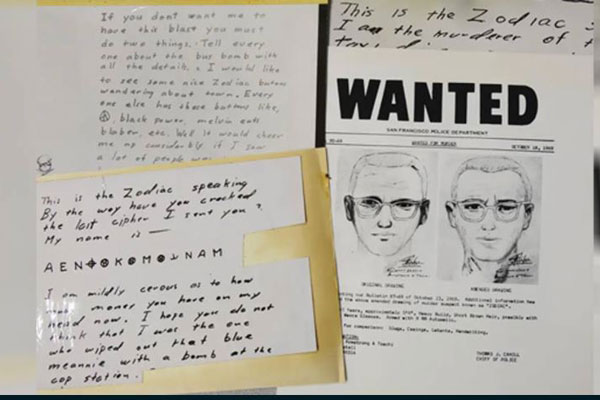 If you dont want me to
have this blast you must
do two things. Tell every
one about the bus bomb with
all the details. I would like
to see some nice Zodiac butons
wandering about town. Every
one else has these buttons like,
black power, melvin eats
bluber, etc. Well it would cheer
me up considerably if I saw
a lot of people
This is the Zodiac speaking
By the way have you cracked
the last cipher I sent you?
My name is —
A E N ⌖ ⊗ K ⊗ M ⊗ N A M
I am mildly cerous as to how
much money you have on my
head now. I hope you do not
think that I was the one
who wiped out that blue
meannie with a bomb at the
cop station.
This is the Zodiac
I am the murderer of
WANTED
SAN FRANCISCO POLICE DEPARTMENT
WANTED FOR MURDER
OCTOBER 18, 1969
ORIGINAL DRAWING
AMENDED DRAWING
Armstrong & Toschi
THOMAS J. CAHILL
CHIEF OF POLICE